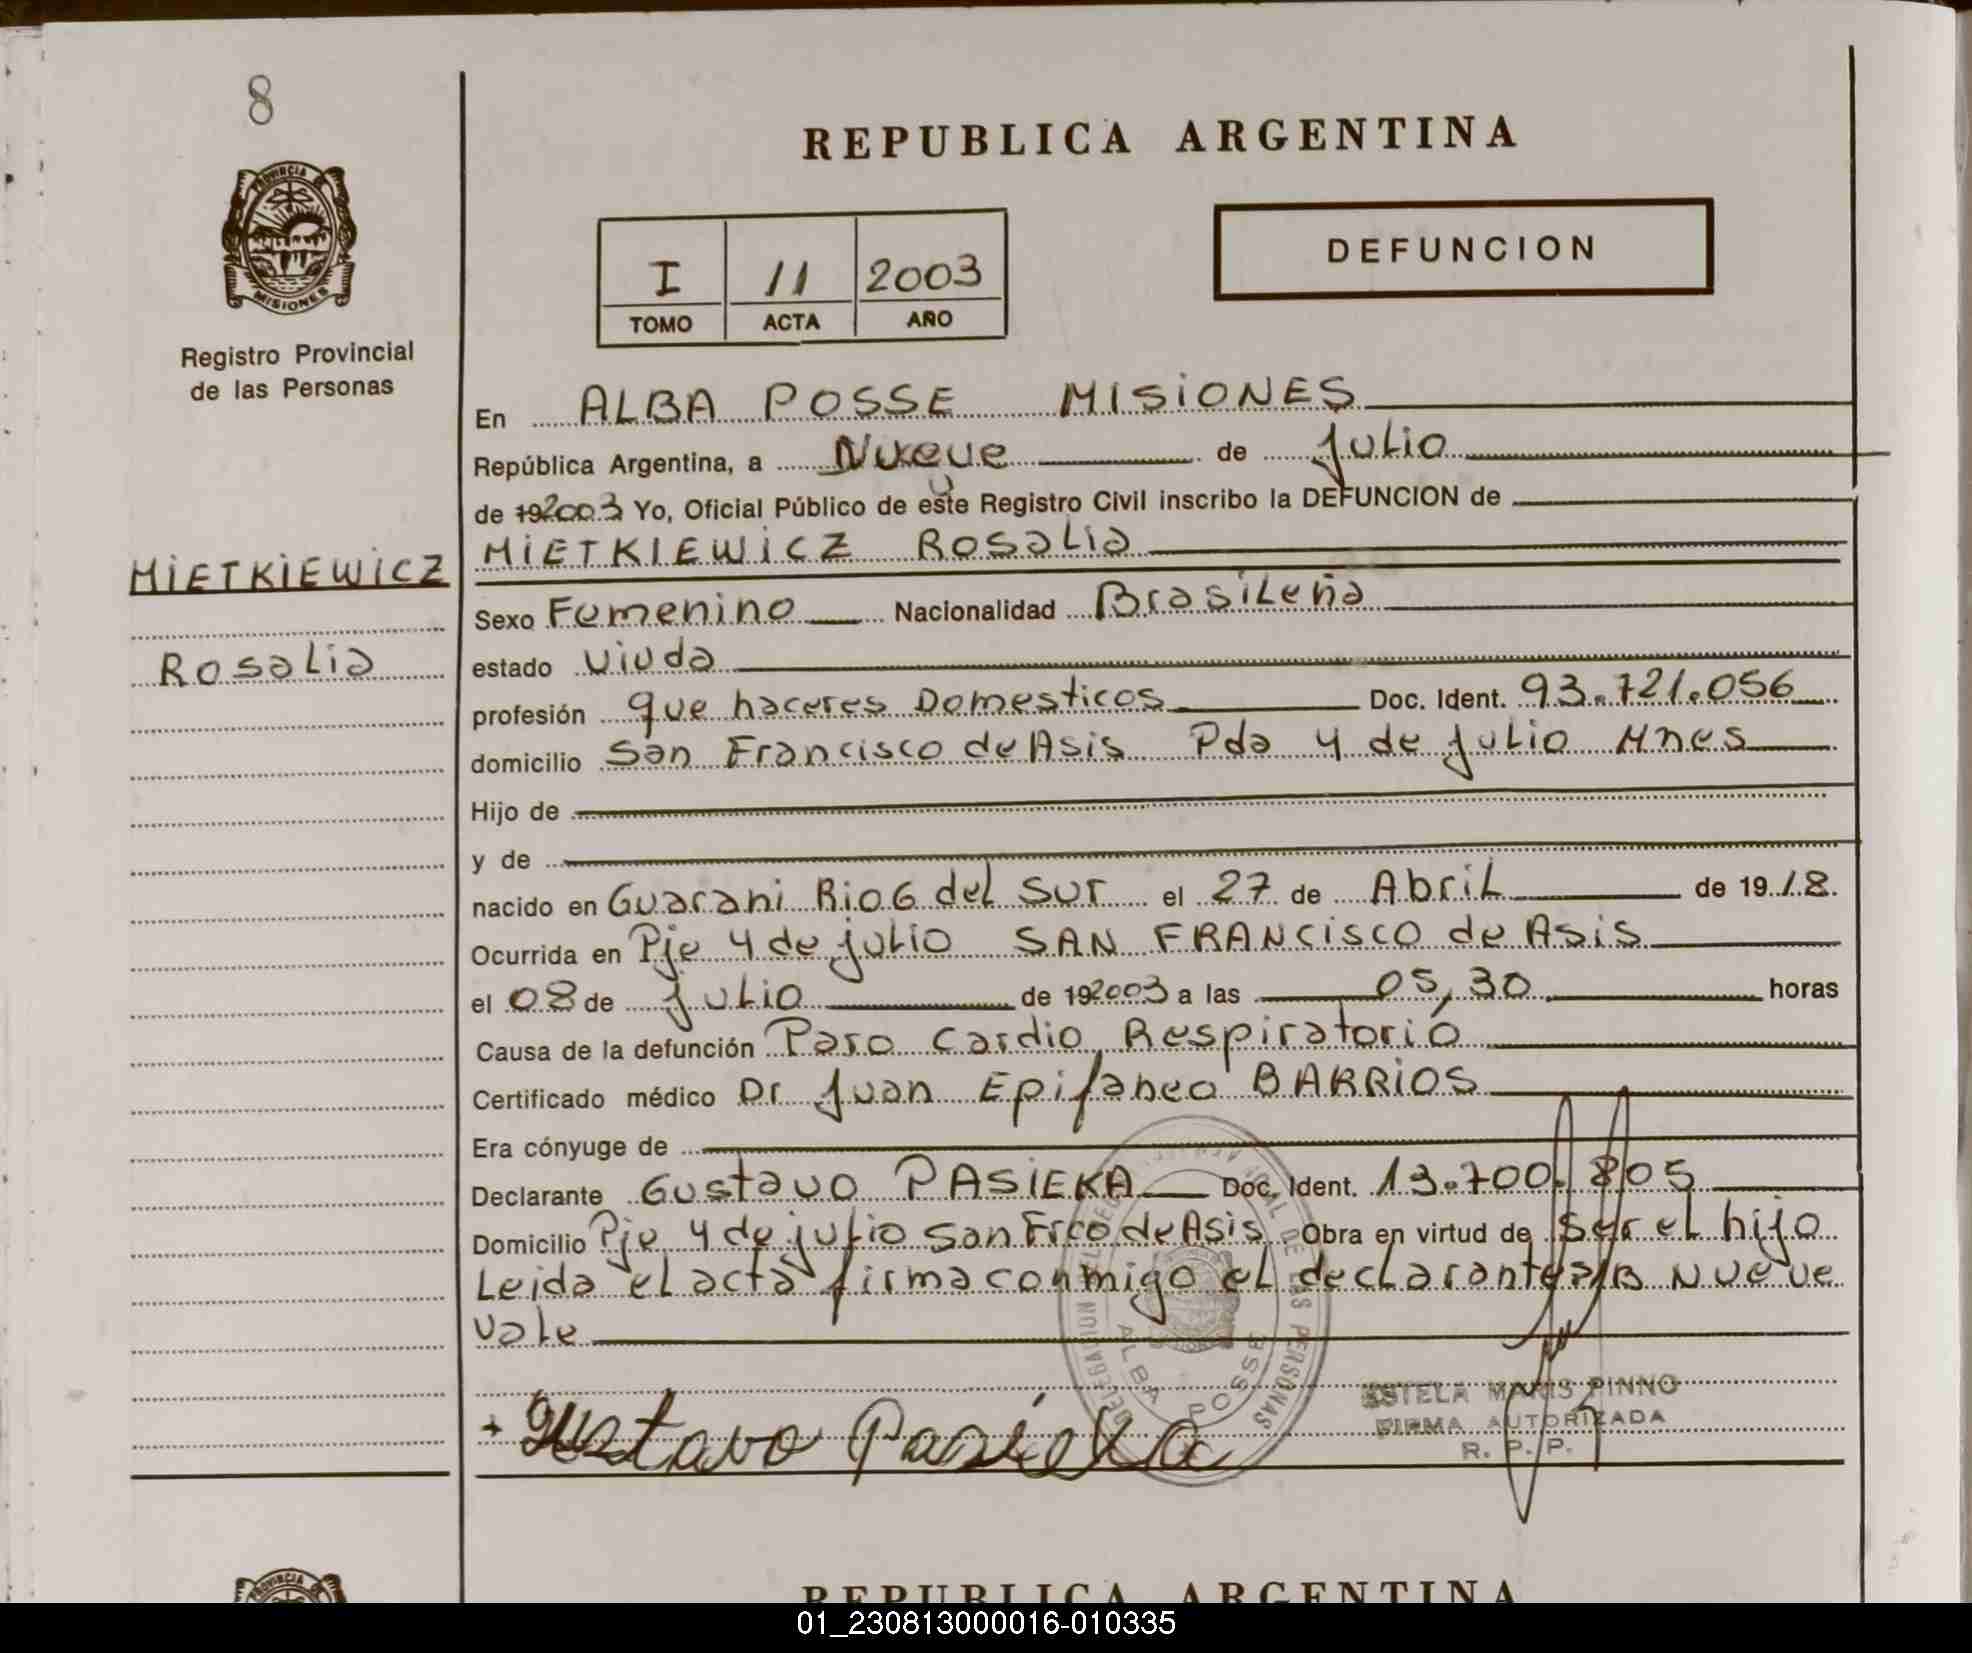 8
REPUBLICA ARGENTINA
PROVINCIA DE
MISIONES
Registro Provincial
de las Personas
I 11 2003
TOMO ACTA AÑO
DEFUNCION
En ALBA POSSE MISIONES
República Argentina, a Nueve de Julio
de 192003 Yo, Oficial Público de este Registro Civil inscribo la DEFUNCION de
MIETKIEWICZ
Rosalia
MIETKIEWICZ Rosalia
Sexo Femenino Nacionalidad Brasileña
estado viuda
profesión que haceres Domesticos Doc. Ident. 93.721.056
domicilio San Francisco de Asis Pda 4 de julio Mnes
Hijo de
y de
nacido en Guarani Rio G del Sur el 27 de Abril de 1918.
Ocurrida en Pje 4 de julio SAN FRANCISCO de Asis
el 08 de julio de 192003 a las 05,30 horas
Causa de la defunción Paro Cardio Respiratorio
Certificado médico Dr Juan Epifaneo BARRIOS
Era cónyuge de
Declarante Gustavo PASIEKA Doc. Ident. 13.700.805
Domicilio Pje 4 de julio San Frco de Asis Obra en virtud de ser el hijo
Leida el acta firma conmigo el declarante S/B Nueve
vale
DELEGACION DE LAS PERSONAS
ALBA POSSE
ESTELA MARIS PINNO
FIRMA AUTORIZADA
R. P. P.
+ Gustavo Pasieka
PROVINCIA DE
REPUBLICA ARGENTINA
01_230813000016-010335